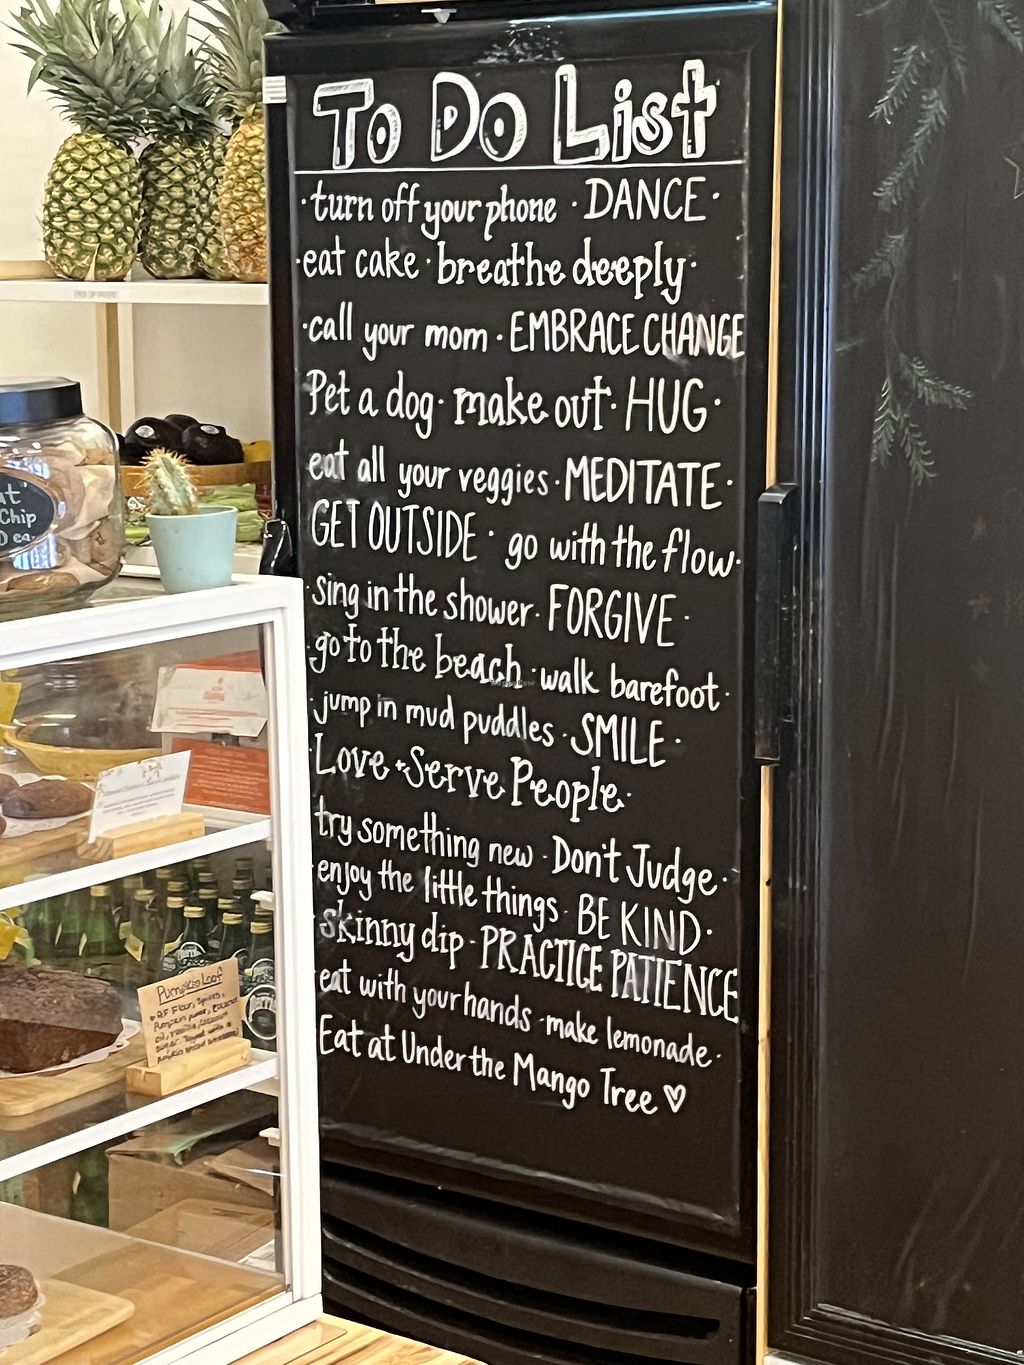 To Do List
·turn off your phone · DANCE ·
·eat cake · breathe deeply ·
·call your mom · EMBRACE CHANGE
Pet a dog · make out · HUG ·
eat all your veggies · MEDITATE ·
GET OUTSIDE · go with the flow ·
·sing in the shower · FORGIVE ·
·go to the beach · walk barefoot ·
·jump in mud puddles · SMILE ·
·Love + Serve People ·
·try something new · Don't Judge ·
·enjoy the little things · BE KIND ·
·skinny dip · PRACTICE PATIENCE
·eat with your hands · make lemonade ·
Eat at Under the Mango Tree ♡
Chip
ea.
Pumpkin Loaf